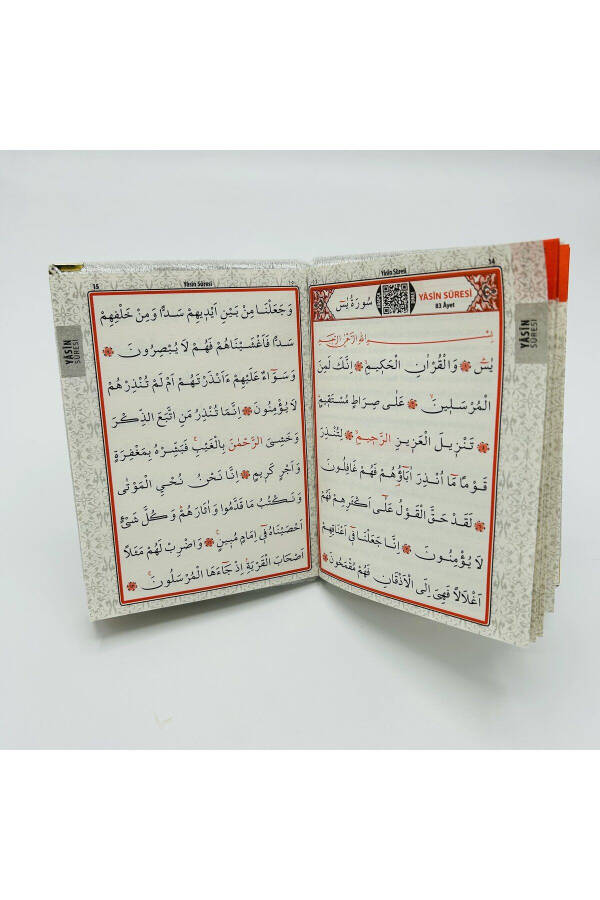 14
Yâsîn Sûresi
سُورَةُ يٰسٓ
YÂSÎN SÛRESİ
83 Âyet
YÂSİN
SÛRESİ
بِسْمِ اللّٰهِ الرَّحْمٰنِ الرَّحِيمِ
يٰسٓ وَالْقُرْاٰنِ الْحَكِيمِ اِنَّكَ لَمِنَ
الْمُرْسَلِينَ عَلٰى صِرَاطٍ مُسْتَقِيمٍ
تَنْزِيلَ الْعَزِيزِ الرَّحِيمِ لِتُنْذِرَ
قَوْمًا مَٓا اُنْذِرَ اٰبَٓاؤُ۬هُمْ فَهُمْ غَافِلُونَ
لَقَدْ حَقَّ الْقَوْلُ عَلٰٓى اَكْثَرِهِمْ فَهُمْ
لَا يُؤْمِنُونَ اِنَّا جَعَلْنَا فِٓي اَعْنَاقِهِمْ
اَغْلَالًا فَهِيَ اِلَى الْاَذْقَانِ فَهُمْ مُقْمَحُونَ
15
Yâsîn Sûresi
YÂSİN
SÛRESİ
وَجَعَلْنَا مِنْ بَيْنِ اَيْدِيهِمْ سَدًّا وَمِنْ خَلْفِهِمْ
سَدًّا فَاَغْشَيْنَاهُمْ فَهُمْ لَا يُبْصِرُونَ
وَسَوَٓاءٌ عَلَيْهِمْ ءَاَنْذَرْتَهُمْ اَمْ لَمْ تُنْذِرْهُمْ
لَا يُؤْمِنُونَ اِنَّمَا تُنْذِرُ مَنِ اتَّبَعَ الذِّكْرَ
وَخَشِيَ الرَّحْمٰنَ بِالْغَيْبِ فَبَشِّرْهُ بِمَغْفِرَةٍ
وَاَجْرٍ كَرِيمٍ اِنَّا نَحْنُ نُحْيِ الْمَوْتٰى
وَنَكْتُبُ مَا قَدَّمُوا وَاٰثَارَهُمْ وَكُلَّ شَيْءٍ
اَحْصَيْنَاهُ فِٓي اِمَامٍ مُبِينٍ وَاضْرِبْ لَهُمْ مَثَلًا
اَصْحَابَ الْقَرْيَةِ اِذْ جَٓاءَهَا الْمُرْسَلُونَ